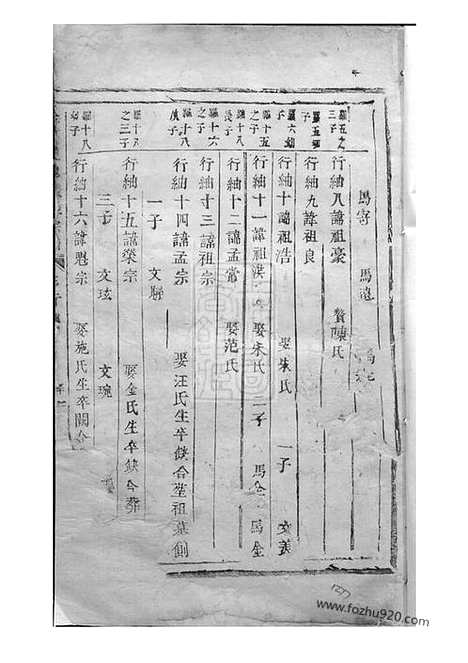 馬寄 馬遠
羅五之三子
行紬八諱祖豪 贅陳氏
羅五
子
行紬九諱祖良
羅六
子
行紬十諱祖浩 娶朱氏 一子 文美
羅十五之子
行紬十一諱祖洪 娶朱氏 二子 馬全
羅十八長子
行紬十二諱孟常 娶范氏
羅十八之子
行紬十三諱祖宗
羅十八
子
行紬十四諱孟宗 娶汪氏生卒缺合塟祖墓側
一子 文聯
羅十八之三子
行紬十五諱榮宗 娶金氏生卒缺合葬
三子 文玹 文琬
羅十八
子
行紬十六諱魁宗 娶施氏生卒闕合
127
www.fozhu920.com